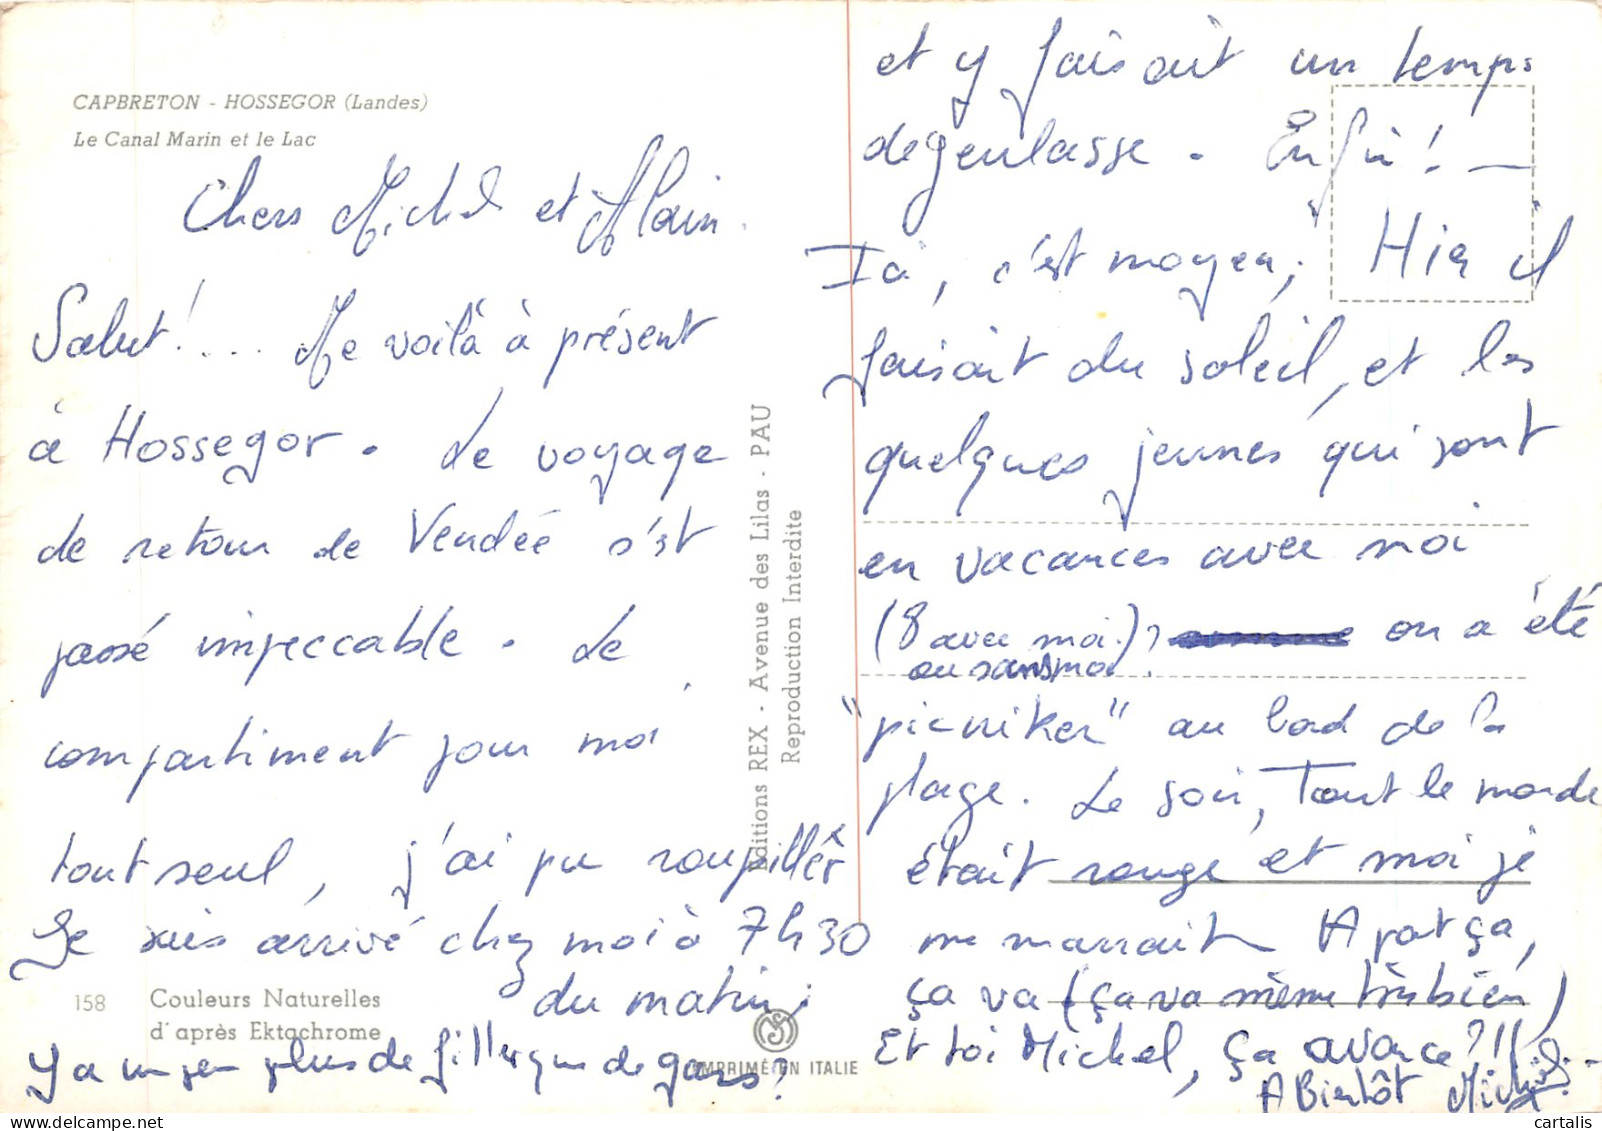 CAPBRETON - HOSSEGOR (Landes)
Le Canal Marin et le Lac
Chers Michel et Alain.
Salut!... Me voilà à présent
à Hossegor. Le voyage
de retour de Vendée s'est
passé impeccable. Le
compartiment pour moi
tout seul, j'ai pu roupiller
Je suis arrivé chez moi à 7h30
du matin;
158 Couleurs Naturelles
d'après Ektachrome
Y a un peu plus de filles que de gars!
Editions REX - Avenue des Lilas - PAU
Reproduction Interdite
IMPRIMÉ EN ITALIE
et y faisait un temps
degeulasse. Enfin! —
Ici, c'est moyen; Hier il
faisait du soleil, et les
quelques jeunes qui sont
en vacances avec moi
(8 avec moi)? on a été
ou sans moi
"picniker" au bord de la
plage. Le soir, Tout le monde
était rouge et moi je
me marrait A part ça,
ça va (ça va même très bien)
Et toi Michel, ça avance?!!
A Bientôt